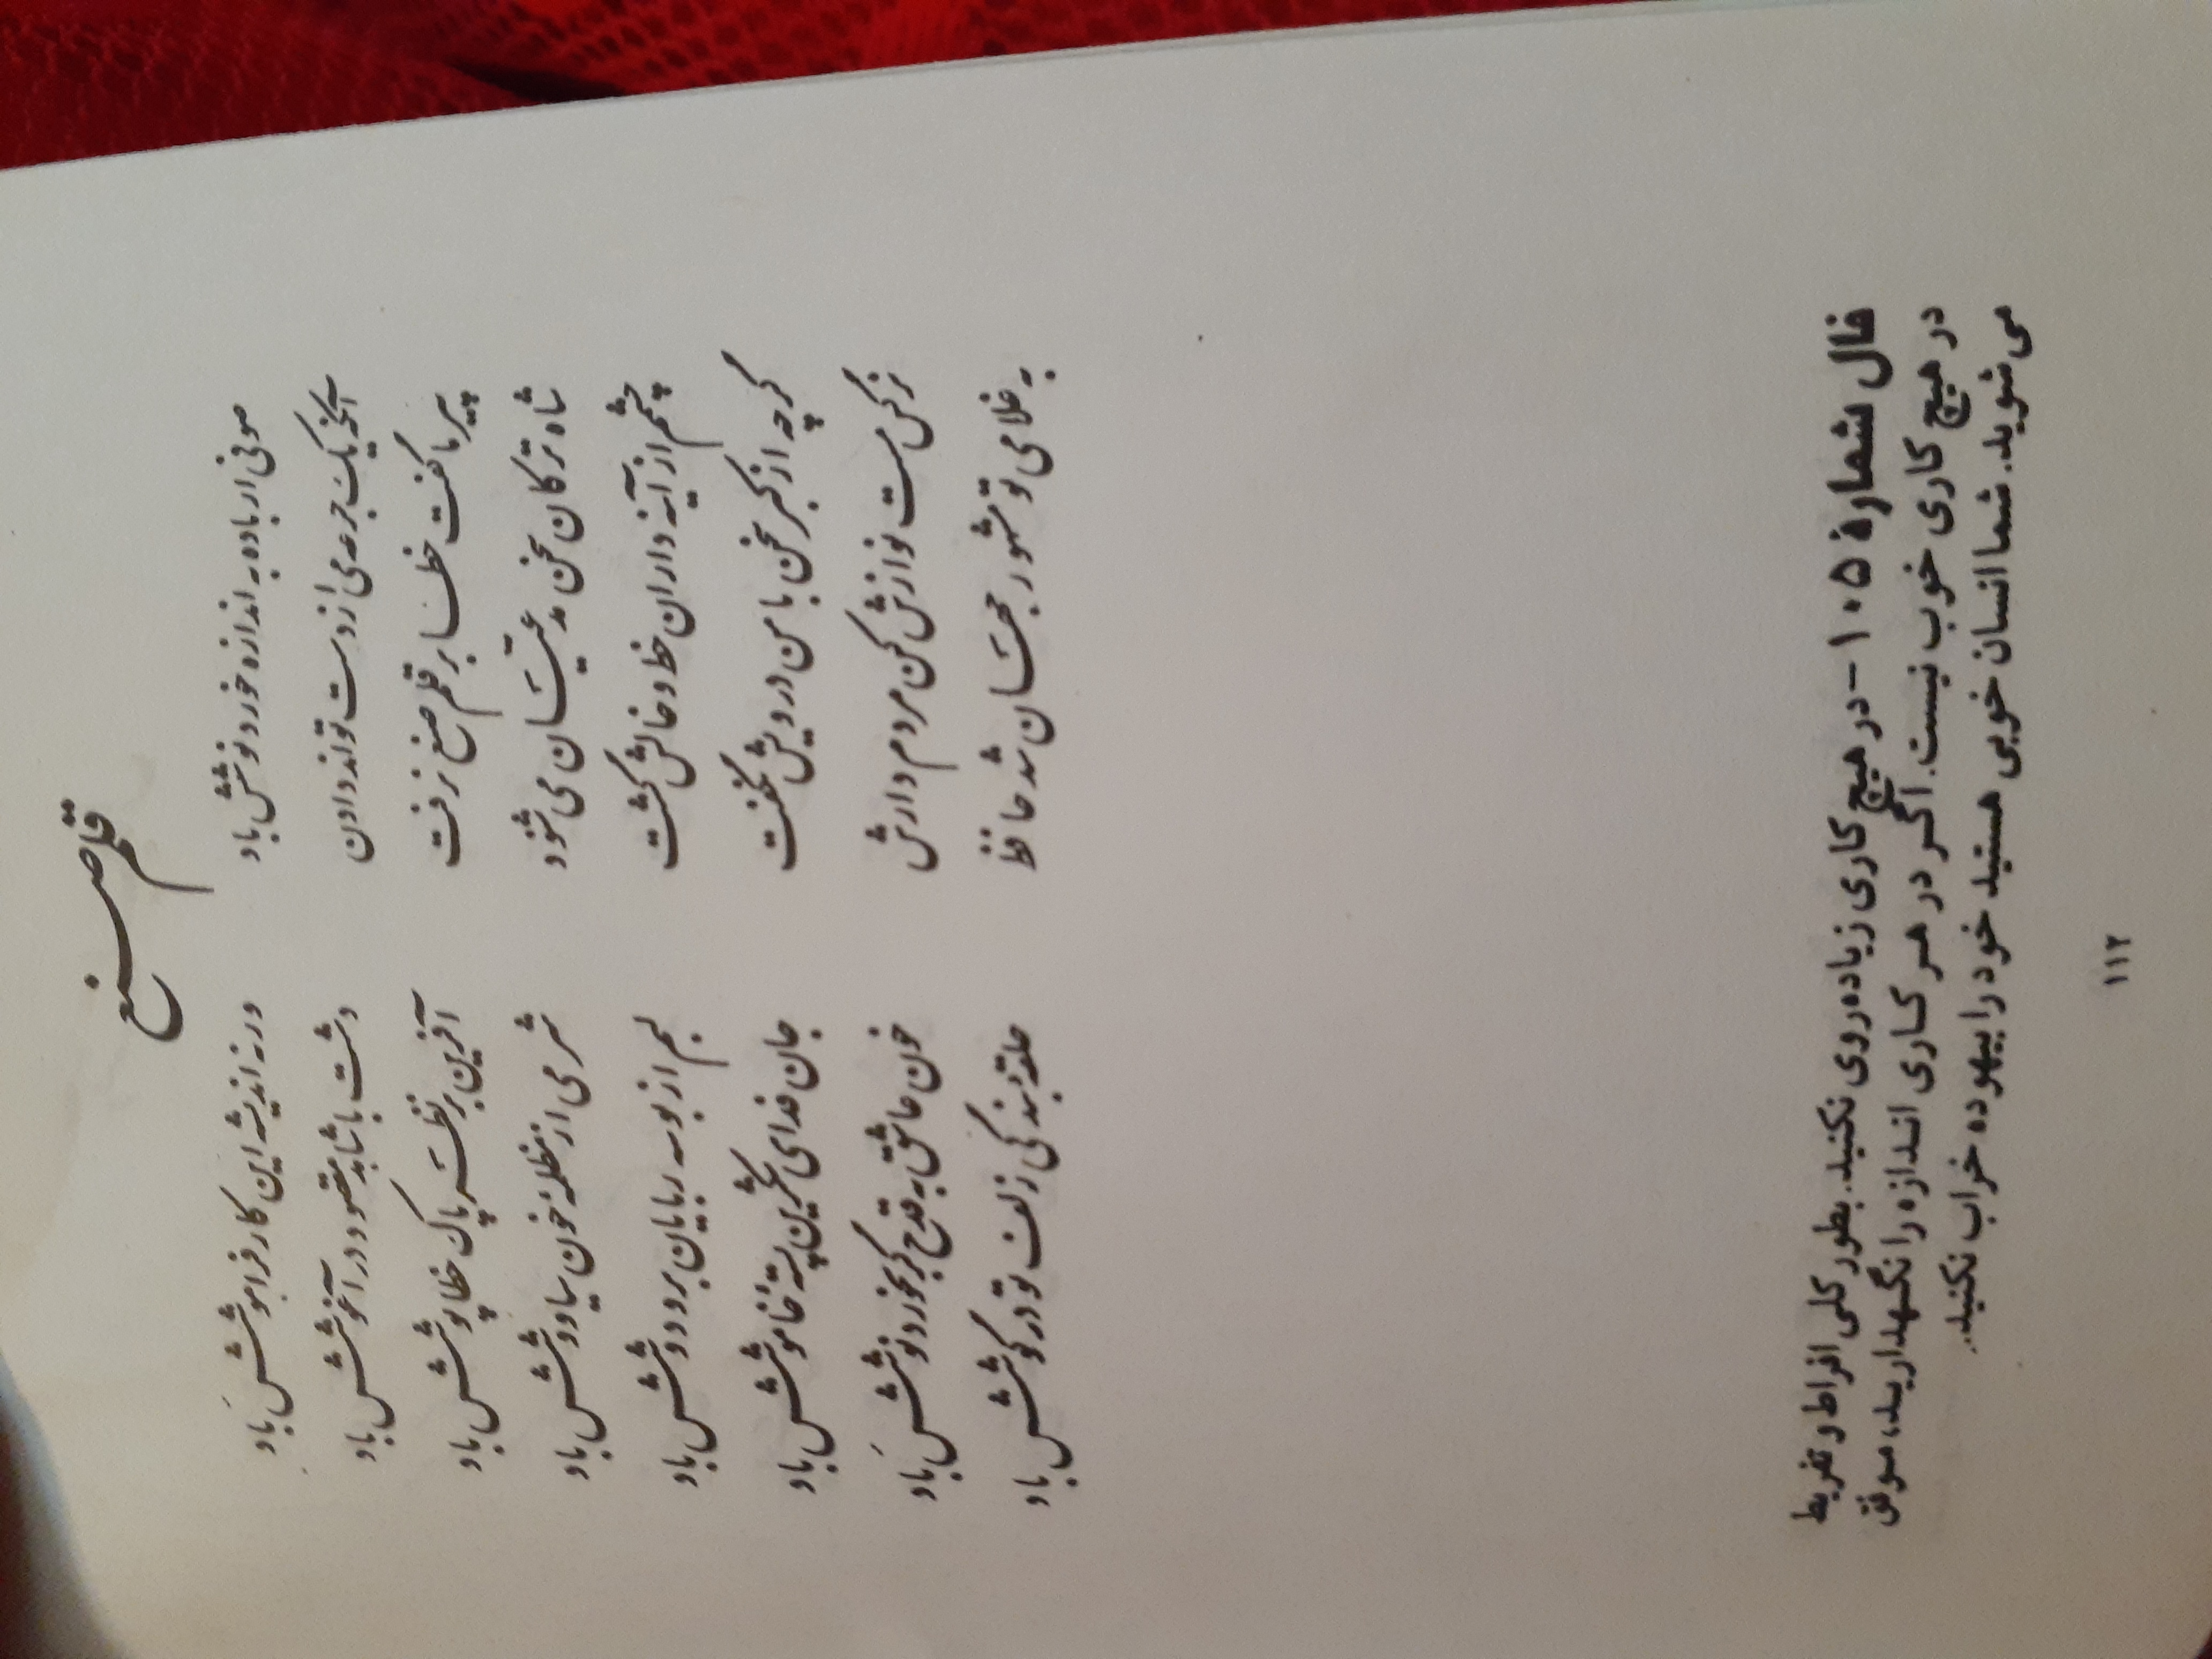 قلم صنع
صوفی ار باده به اندازه خورد نوشش باد
ورنه اندیشه این کار فراموشش باد
آنکه یک جرعه می از دست تواند دادن
دست با شاهد مقصود در آغوشش باد
پیر ما گفت خطا بر قلم صنع نرفت
آفرین بر نظر پاک خطاپوشش باد
شاه ترکان سخن مدعیان می شنود
شرمی از مظلمه خون سیاووشش باد
چشم از آینه داران خط و خالش گشت
لبم از بوسه ربایان بر و دوشش باد
گرچه از کبر سخن با من درویش نگفت
جان فدای شکرین پسته خاموشش باد
نرگس مست نوازش کن مردم دارش
خون عاشق به قدح گر بخورد نوشش باد
به غلامی تو مشهور جهان شد حافظ
حلقه بندگی زلف تو در گوشش باد
فال شمارۀ ۱۰۵ - در هیچ کاری زیاده روی نکنید. بطور کلی افراط و تفریط
در هیچ کاری خوب نیست. اگر در هر کاری اندازه را نگهدارید، موفق
می شوید. شما انسان خوبی هستید خود را بیهوده خراب نکنید.
۱۱۲